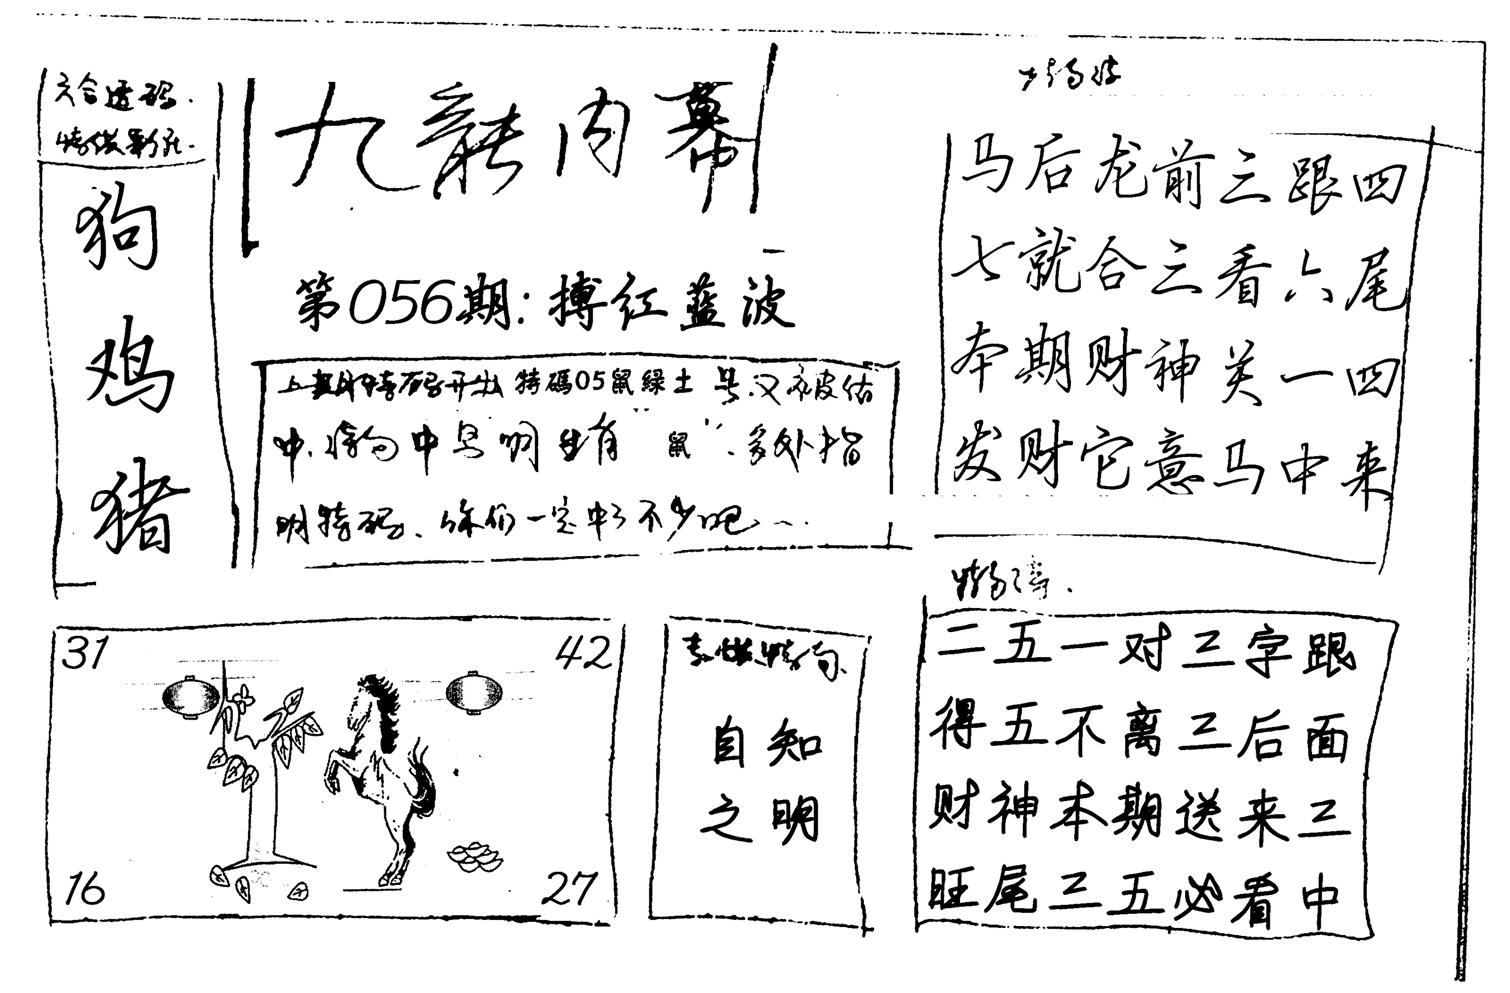 六合透码.
九龍内幕
狗
鸡
猪
第056期:搏红蓝波
上期特码开出 特碼05鼠緑土 号.又被估
中.特句中只明生肖"鼠".多处指
明特码、你们一定中了不少吧
马后龙前三跟四
七就合三看六尾
本期财神关一四
发财它意马中来
31
42
16
27
自知
之明
二五一对三字跟
得五不离三后面
财神本期送来三
旺尾三五必看中